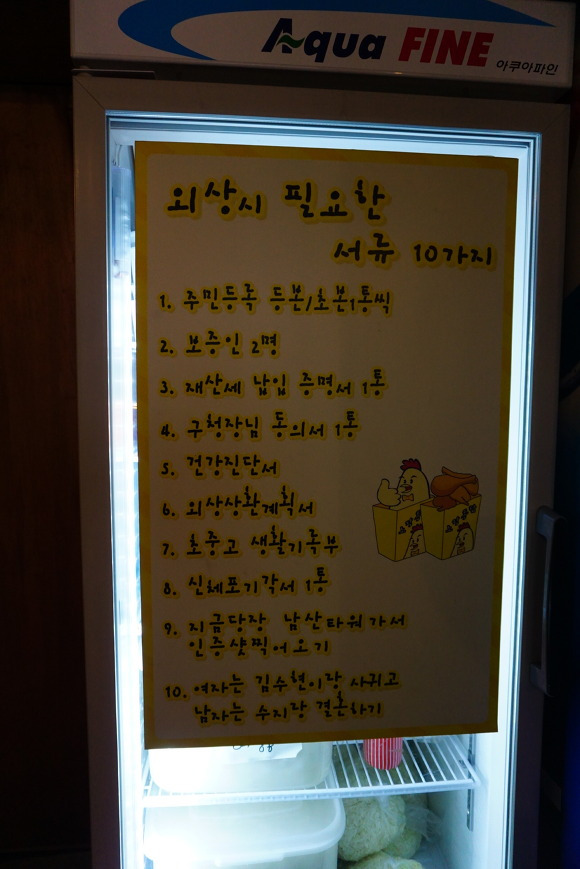 Aqua FINE
아쿠아파인
외상시 필요한
서류 10가지
1. 주민등록 등본/초본1통씩
2. 보증인 2명
3. 재산세 납입 증명서 1통
4. 구청장님 동의서 1통
5. 건강진단서
6. 외상상환계획서
7. 초중고 생활기록부
8. 신체포기각서 1통
9. 지금당장 남산타워가서
인증샷찍어오기
10. 여자는 김수현이랑 사귀고
남자는 수지랑 결혼하기